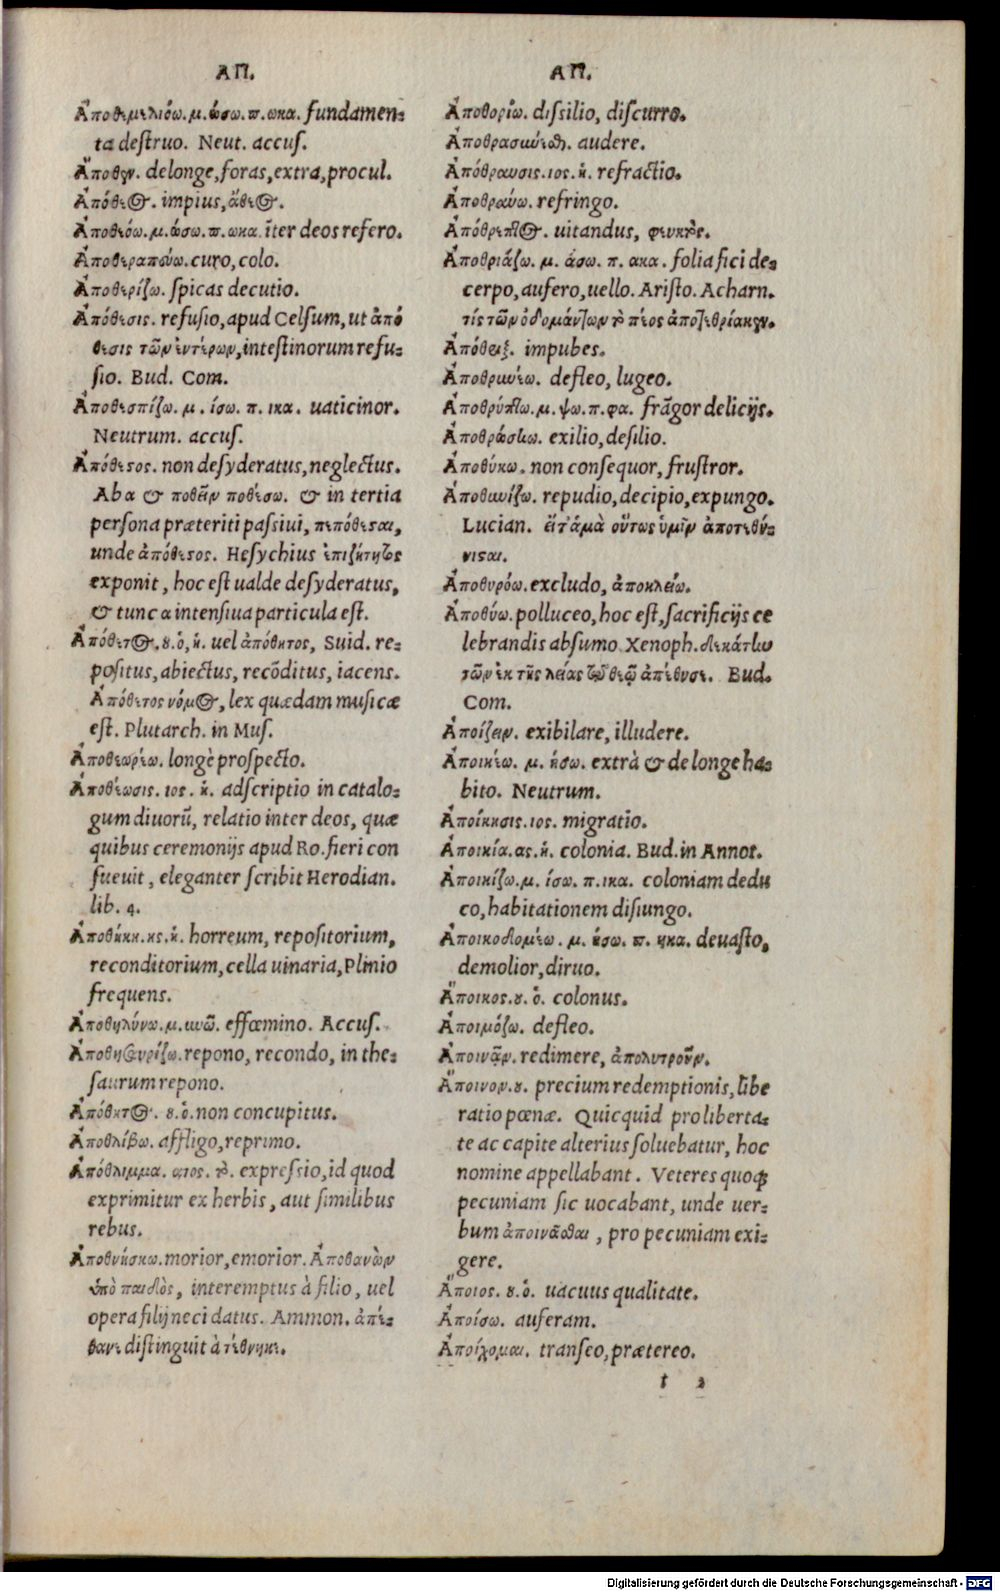 ΑΠ.
Ἀποθεμελιόω. μ. ώσω. π. ωκα. fundamen-
ta destruo. Neut. accus.
Ἄποθεν. delonge, foras, extra, procul.
Ἀπόθεος. impius, ἄθεος.
Ἀποθεόω. μ. ώσω. π. ωκα. īter deos refero.
Ἀποθεραπεύω. curo, colo.
Ἀποθερίζω. spicas decutio.
Ἀπόθεσις. refusio, apud Celsum, ut ἀπό
θεσις τῶν ἐντέρων, intestinorum refu-
sio. Bud. Com.
Ἀποθεσπίζω. μ. ίσω. π. ικα. uaticinor.
Neutrum. accus.
Ἀπόθεστος. non desyderatus, neglectus.
Ab α & ποθεῖν ποθέσω. & in tertia
persona præteriti passiui, πεπόθεσται,
unde ἀπόθεστος. Hesychius ἐπιζήτητος
exponit, hoc est ualde desyderatus,
& tunc α intensiua particula est.
Ἀπόθετος. ου. ὁ, ἡ. uel ἀπόθητος, Suid. re-
positus, abiectus, recōditus, iacens.
Ἀπόθετος νόμος, lex quædam musicæ
est. Plutarch. in Mus.
Ἀποθεωρέω. longè prospecto.
Ἀποθέωσις. ιος. ἡ. adscriptio in catalo-
gum diuorū, relatio inter deos, quæ
quibus ceremonijs apud Ro. fieri con
sueuit, eleganter scribit Herodian.
lib. 4.
Ἀποθήκη. ης. ἡ. horreum, repositorium,
reconditorium, cella uinaria, Plinio
frequens.
Ἀποθηλύνω. μ. υνῶ. effœmino. Accus.
Ἀποθησαυρίζω. repono, recondo, in the-
saurum repono.
Ἀπόθητος. ου. ὁ. non concupitus.
Ἀποθλίβω. affligo, reprimo.
Ἀπόθλιμμα. ατος. τὸ. expressio, id quod
exprimitur ex herbis, aut similibus
rebus.
Ἀποθνήσκω. morior, emorior. Ἀποθανὼν
ὑπὸ παιδὸς, interemptus à filio, uel
opera filij neci datus. Ammon. ἀπέ-
θανε distinguit à τέθνηκε.
ΑΠ.
Ἀποθορέω. dissilio, discurro.
Ἀποθρασύνεσθαι. audere.
Ἀπόθραυσις. ιος. ἡ. refractio.
Ἀποθραύω. refringo.
Ἀπόθρεπτος. uitandus, φευκτὸς.
Ἀποθριάζω. μ. άσω. π. ακα. folia fici de-
cerpo, aufero, uello. Aristo. Acharn.
τίς τῶν ὀδομάντων τὸ πέος ἀποτεθρίακεν.
Ἀπόθριξ. impubes.
Ἀποθρηνέω. defleo, lugeo.
Ἀποθρύπτω. μ. ψω. π. φα. frāgor delicijs.
Ἀποθρώσκω. exilio, desilio.
Ἀποθύκω. non consequor, frustror.
Ἀποθυνίζω. repudio, decipio, expungo.
Lucian. εἶτ' ἅμα οὕτως ὑμῖν ἀποτεθύ-
νισαι.
Ἀποθυρόω. excludo, ἀποκλείω.
Ἀποθύω. polluceo, hoc est, sacrificijs ce
lebrandis absumo Xenoph. δεκάτην
τῶν ἐκ τῆς λείας τῷ θεῷ ἀπέθυσε. Bud.
Com.
Ἀποίζειν. exibilare, illudere.
Ἀποικέω. μ. ήσω. extrà & de longe ha-
bito. Neutrum.
Ἀποίκησις. ιος. migratio.
Ἀποικία. ας. ἡ. colonia. Bud. in Annot.
Ἀποικίζω. μ. ίσω. π. ικα. coloniam dedu
co, habitationem disiungo.
Ἀποικοδομέω. μ. ήσω. π. ηκα. deuasto,
demolior, diruo.
Ἄποικος. ου. ὁ. colonus.
Ἀποιμόζω. defleo.
Ἀποινᾷν. redimere, ἀπολυτροῦν.
Ἄποινον. ου. precium redemptionis, libe
ratio pœnæ. Quicquid pro liberta-
te ac capite alterius soluebatur, hoc
nomine appellabant. Veteres quoq;
pecuniam sic uocabant, unde uer-
bum ἀποινᾶσθαι, pro pecuniam exi-
gere.
Ἄποιος. ου. ὁ. uacuus qualitate.
Ἀποίσω. auferam.
Ἀποίχομαι. transeo, prætereo.
t 2
Digitalisierung gefördert durch die Deutsche Forschungsgemeinschaft - DFG